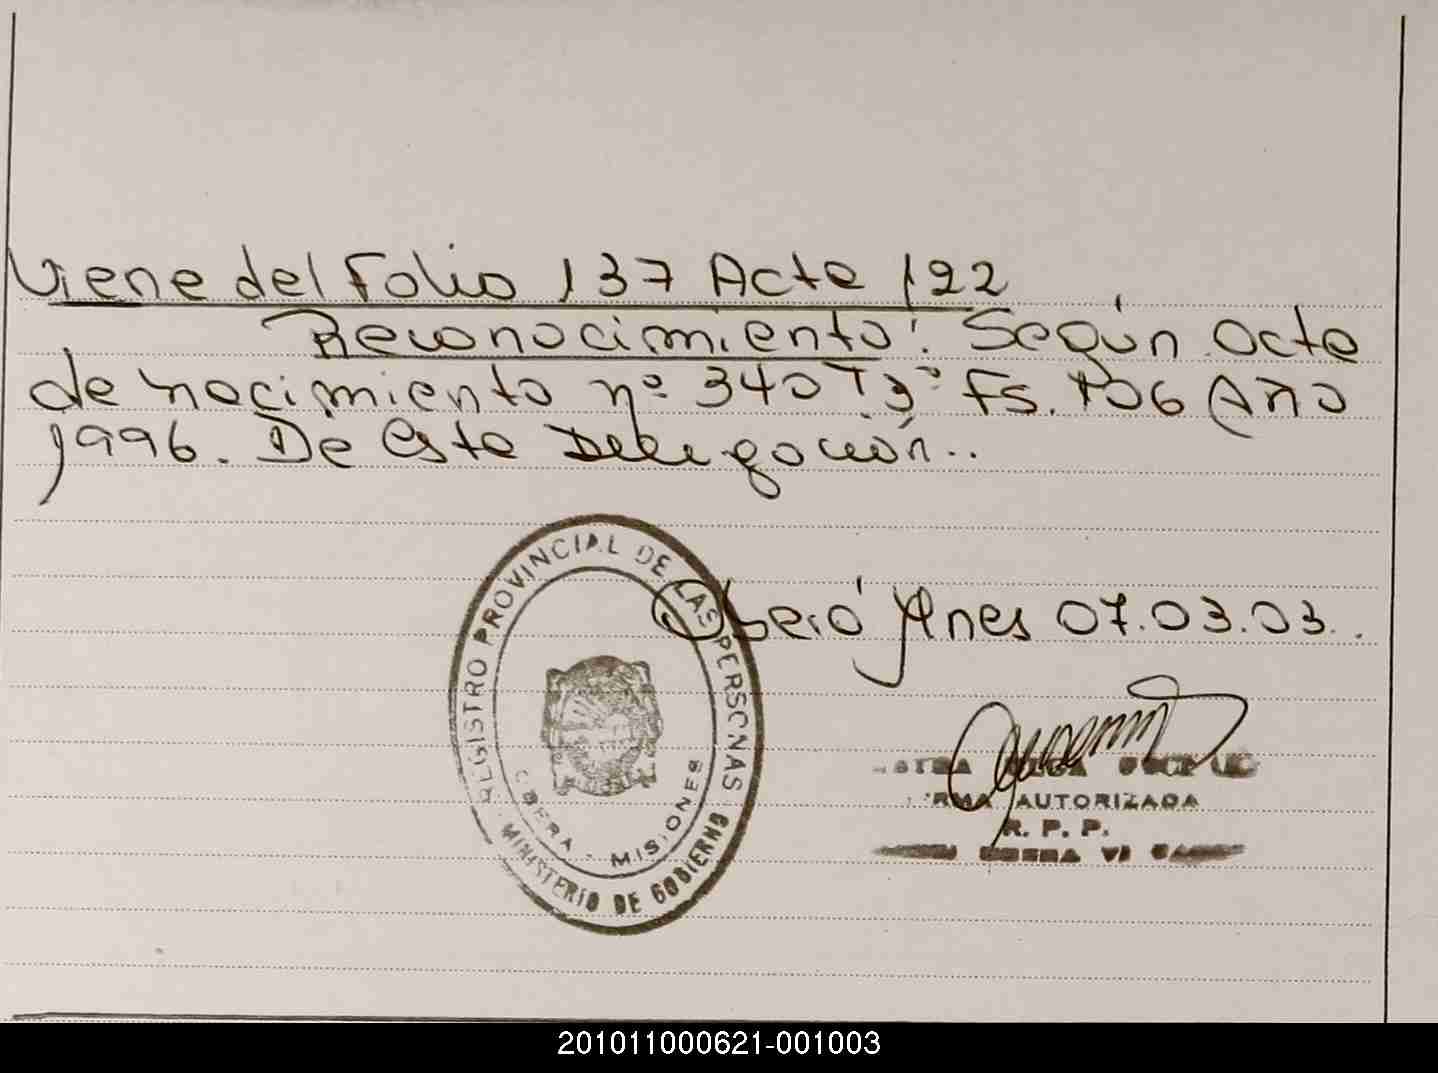 Viene del Folio 137 Acta 122
Reconocimiento: Según acta
de nacimiento nº 340 Tº 3º Fs. 106 Año
1996. De esta Delegación..
Oberá Mnes 07.03.03..
REGISTRO PROVINCIAL DE LAS PERSONAS
MINISTERIO DE GOBIERNO
OBERA - MISIONES
AUTORIZADA
R. P. P.
201011000621-001003